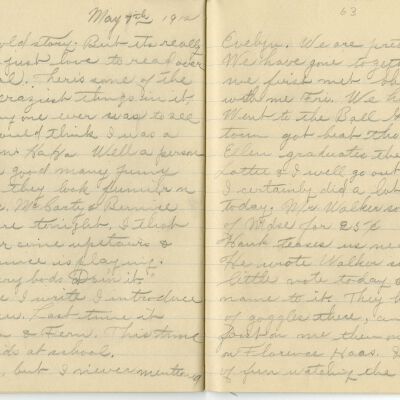 May 7th 1912
old story. But its really
just love to read over
. There's some of the
craziest things in it
one ever was to see
would think I was a
Well a person
good many funny
they look funnier in
Mc Carty & Bernice
tonight. I think
are upstairs &
is playing.
body's Doin' it"
I write I introduce
Last time it
& Fern. This time
kids at school.
, but I never mentioned
63
Evelyn. We are pre
We have gone to get
we first met. She
with me Fri. We h
Went to the Ball
town got beat tho
Ellen graduates the
Lottie & I will go out
I certainly did a lot
today. Mr Walker so
of for 25¢
Hank teases us
He wrote Walker
little note today
name to it. They
of goggles there, an
on me then
on Florence Haas.
of fun watching the